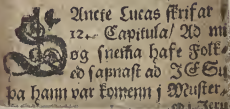 SAncte Lucas skrifar
12. Capitula/ Ad mi
og snema hafe Folk-
ed sapnast ad JESu
pa hann var komenn j Muster-